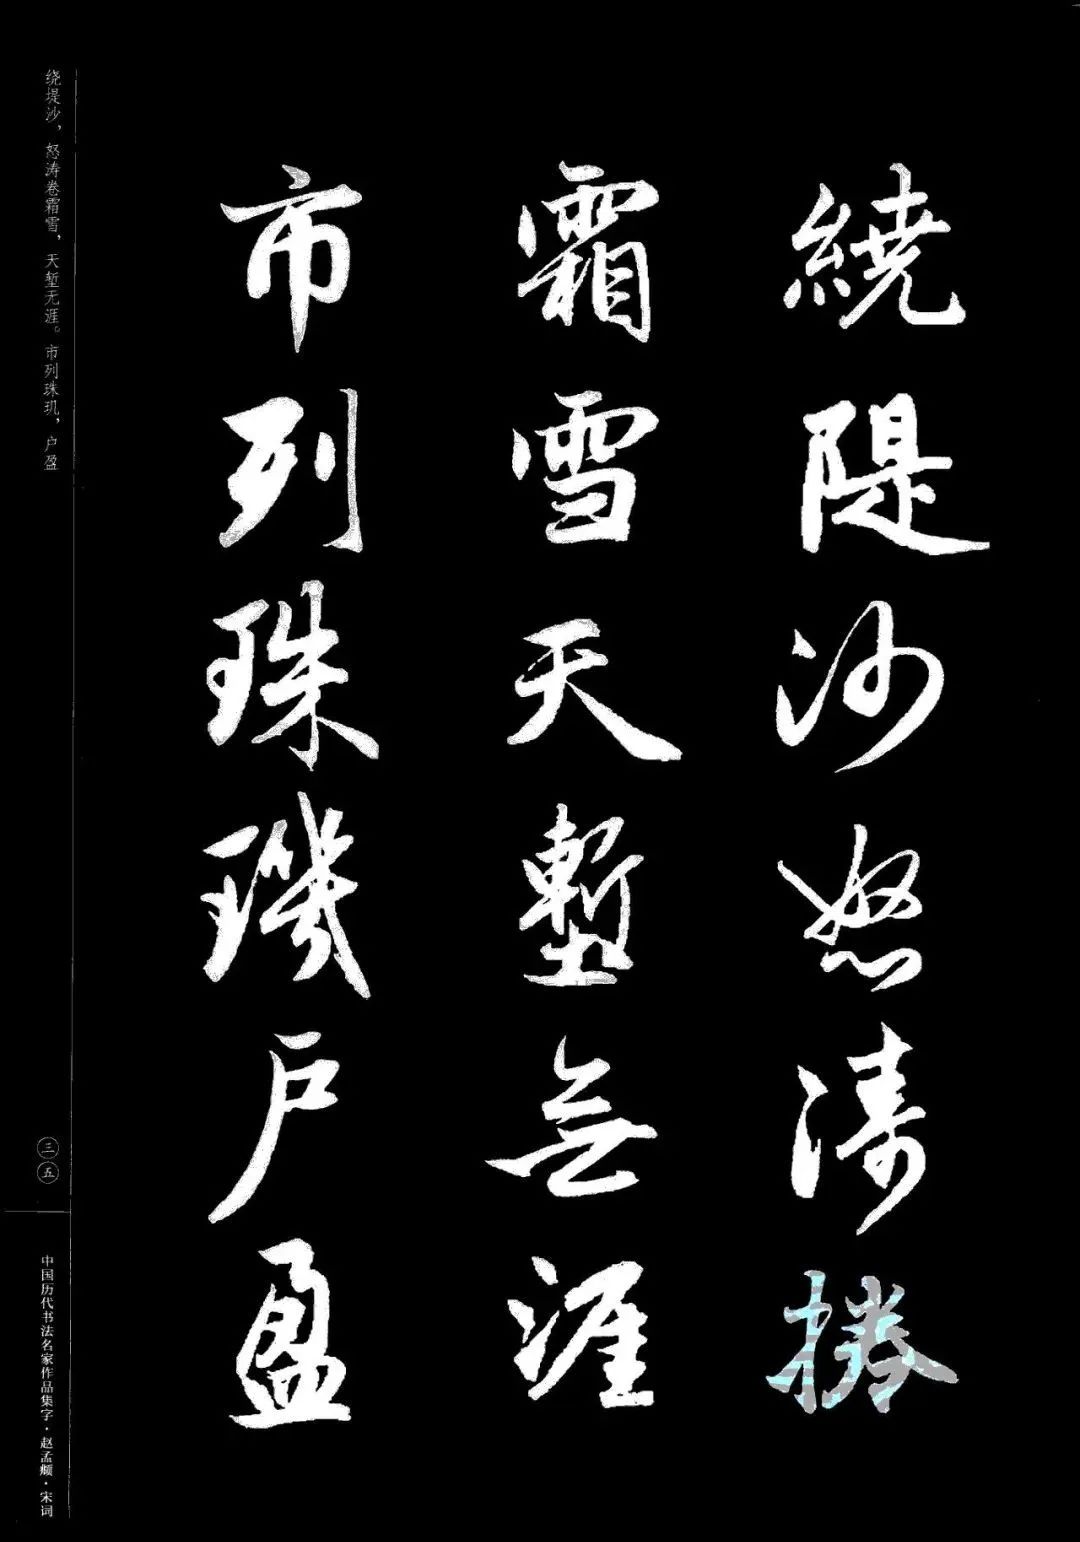 繞隄沙怒濤捲
霜雪天塹無涯
市列珠璣戶盈
绕堤沙，怒涛卷霜雪，天堑无涯。市列珠玑，户盈
三五
中国历代书法名家作品集字·赵孟頫·宋词